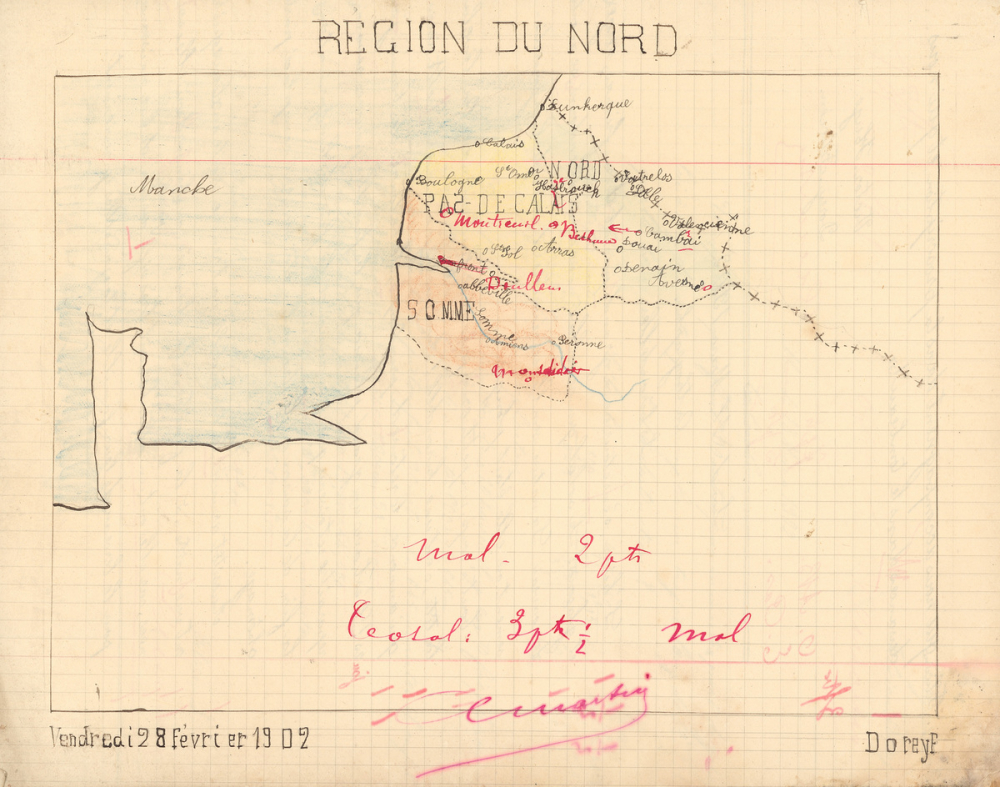 REGION DU NORD
Dunkerque
Calais
Manche
Boulogne
St Omer
NORD
Hazebrouck
PAS-DE CALAIS
Montreuil.
Bethune
Valencienne
Cambai
Douai
St Pol
Arras
Denain
Avesne
Doullens
abbeville
SOMME
Somme
Amiens
Peronne
Montdidier
Mal. 2 pts
Total: 3 pts 1/2 Mal
Vendredi 28 février 1902